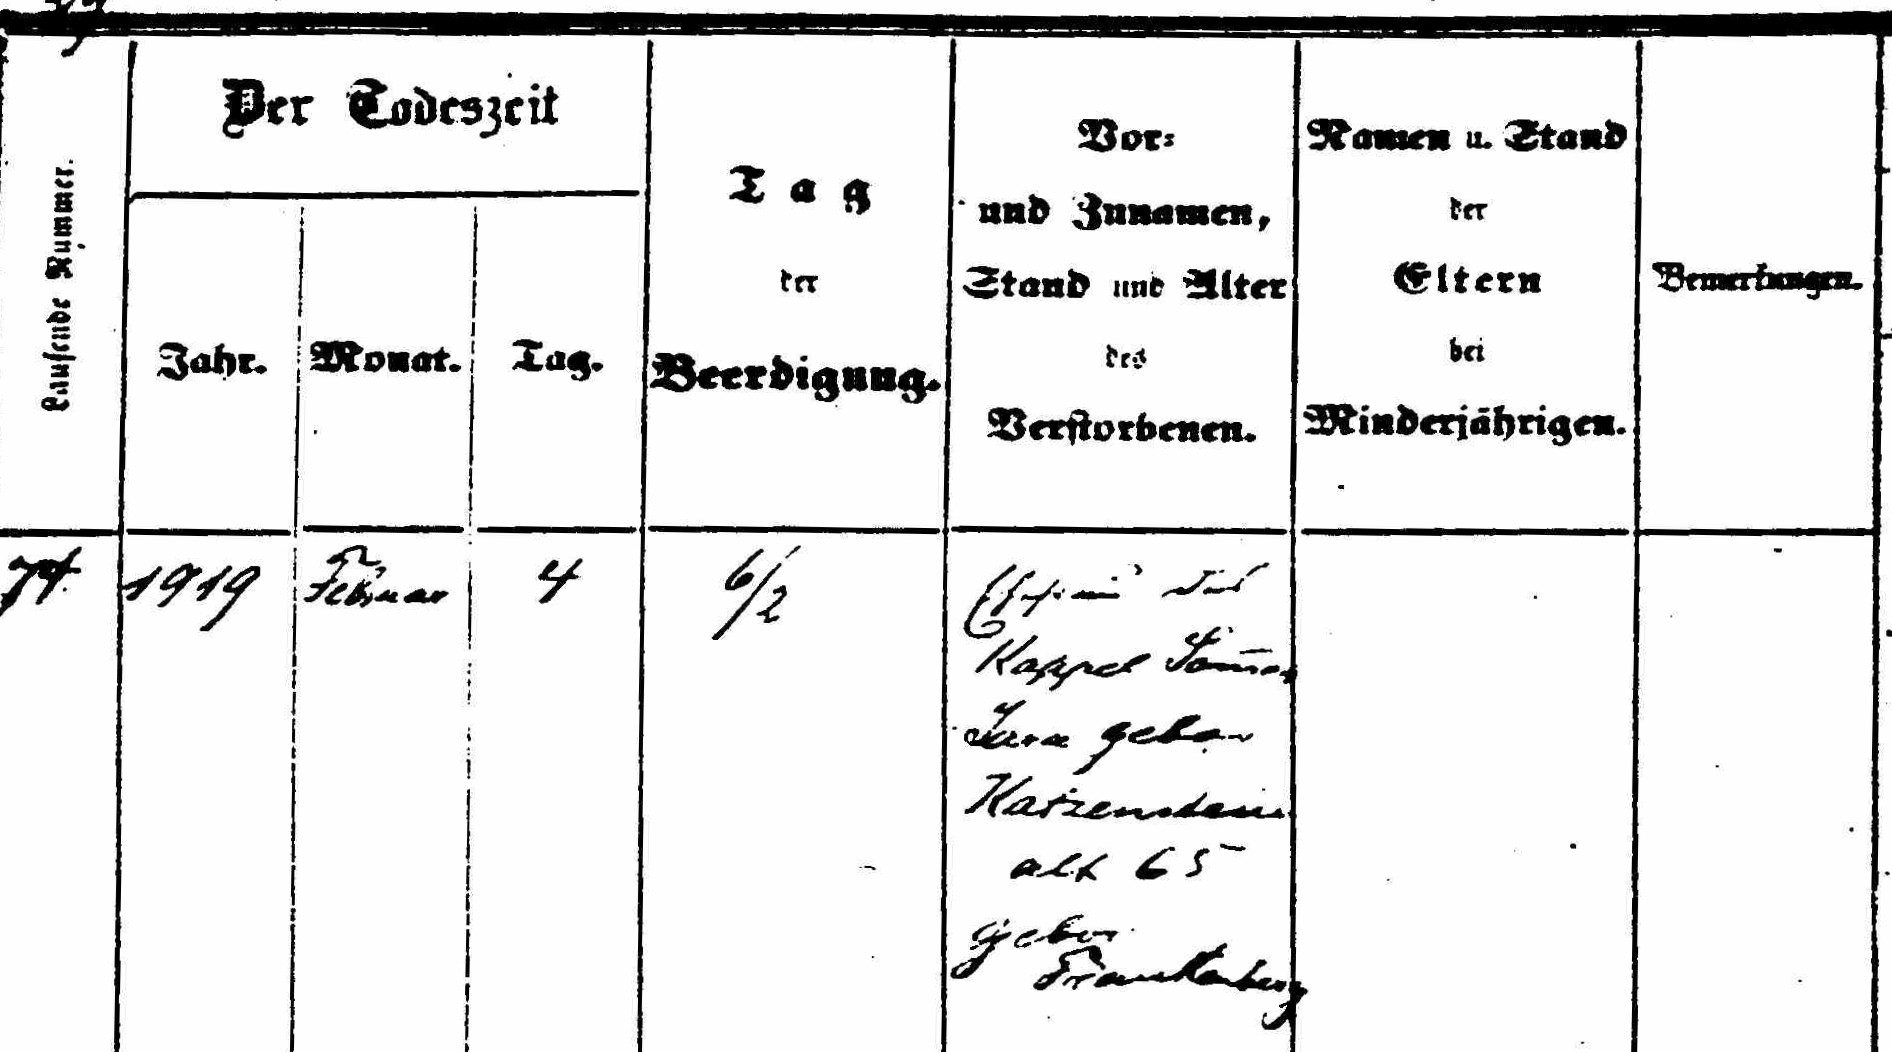 Laufende Nummer.
Der Todeszeit
Jahr.
Monat.
Tag.
Tag
der
Beerdigung.
Vor-
und Zunamen,
Stand und Alter
des
Verstorbenen.
Namen u. Stand
der
Eltern
bei
Minderjährigen.
Bemerkungen.
74.
1919
Februar
4
6/2
Kappel
Sara gebor
Katzenstein
alt 65
gebor
Frankenberg